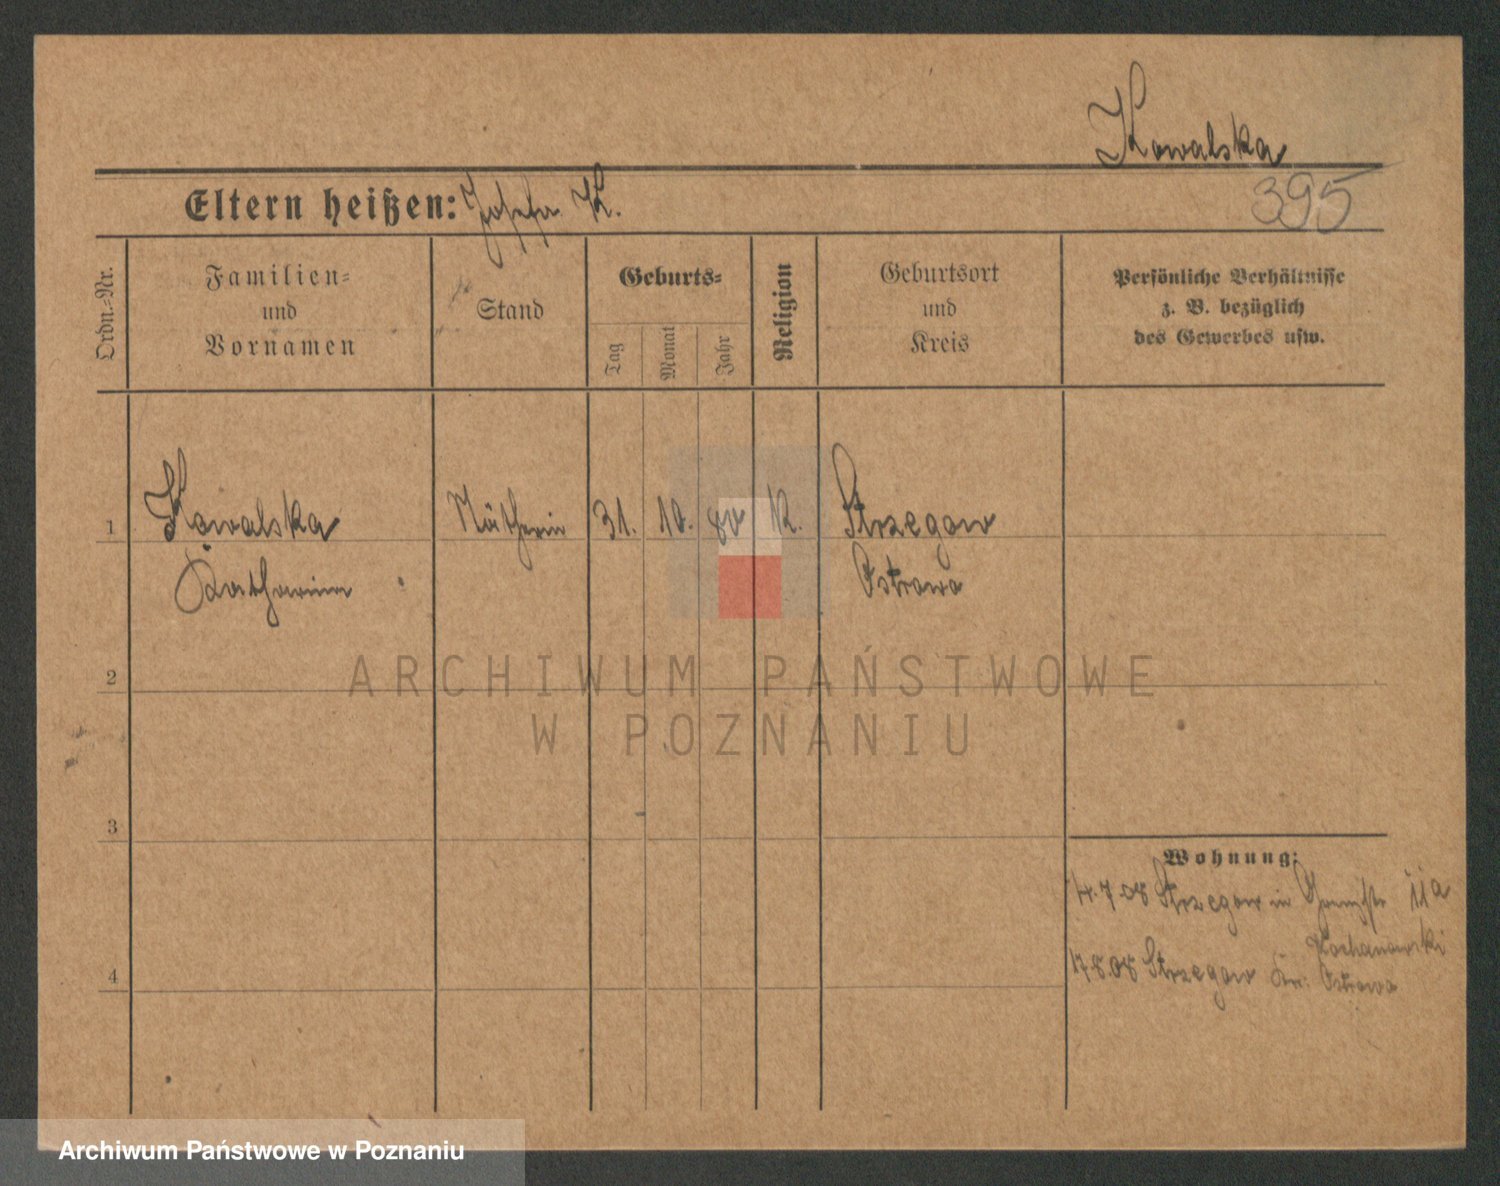 Kowalska
395
Eltern heißen: Josefa K.
Ordn.-Nr.
Familien-
und
Vornamen
Stand
Geburts-
Tag
Monat
Jahr
Religion
Geburtsort
und
Kreis
Persönliche Verhältnisse
z. B. bezüglich
des Gewerbes usw.
1 Kowalska Nätherin 31. 10. 80 K. Strzegow
Katharina Ostrowo
2
3
4
Wohnung:
14.7.08 Strzegow in 11a
Kochanowski
17.8.08 Strzegow Kr. Ostrowo
ARCHIWUM PAŃSTWOWE
W POZNANIU
Archiwum Państwowe w Poznaniu